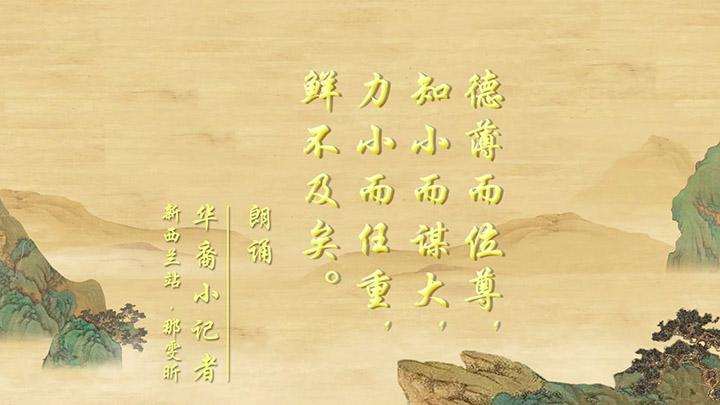 德薄而位尊，
知小而谋大，
力小而任重，
鲜不及矣。
朗诵
华裔小记者
新西兰站·那雯昕